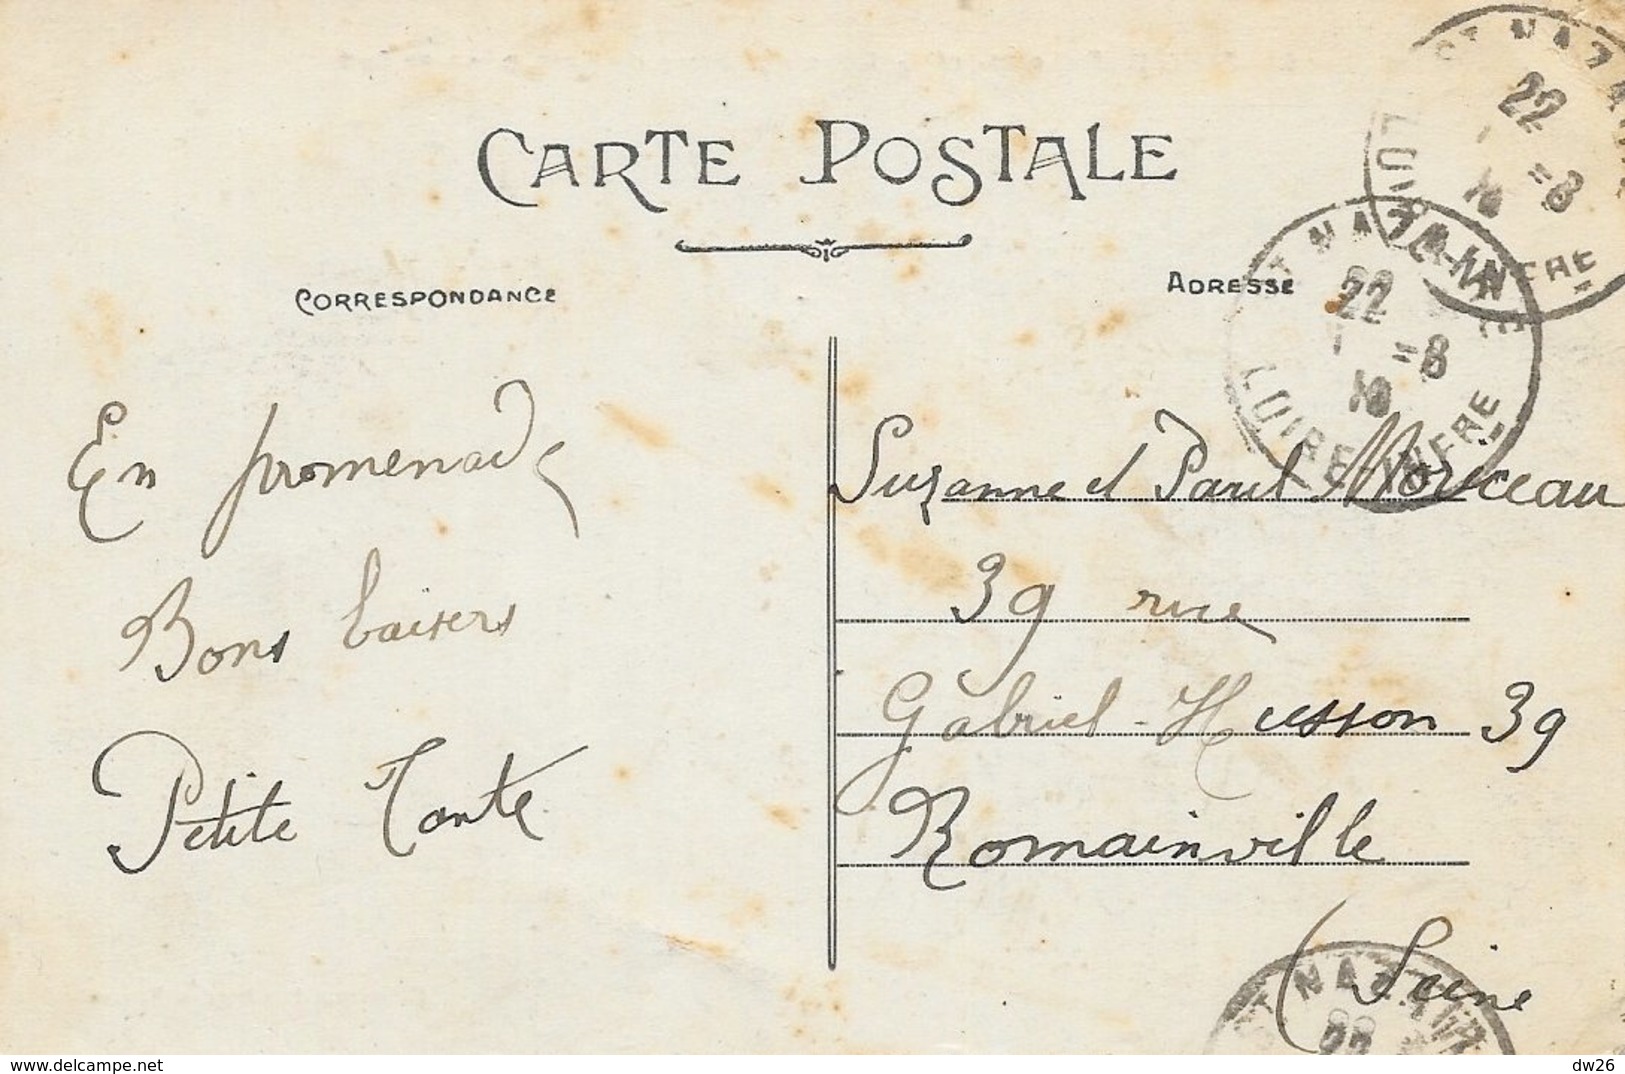 CARTE POSTALE
CORRESPONDANCE
ADRESSE
ST NAZAIRE
22 =8
LOIRE-INFRE
ST NAZAIRE
22 =8
LOIRE-INFRE
En promenade
Bons baisers
Petite Tante
Suzanne et Paul Moriceau
39 rue
Gabriel-Husson 39
Romainville
(Seine
ST NAZAIRE
22
delcampe.net
dw26